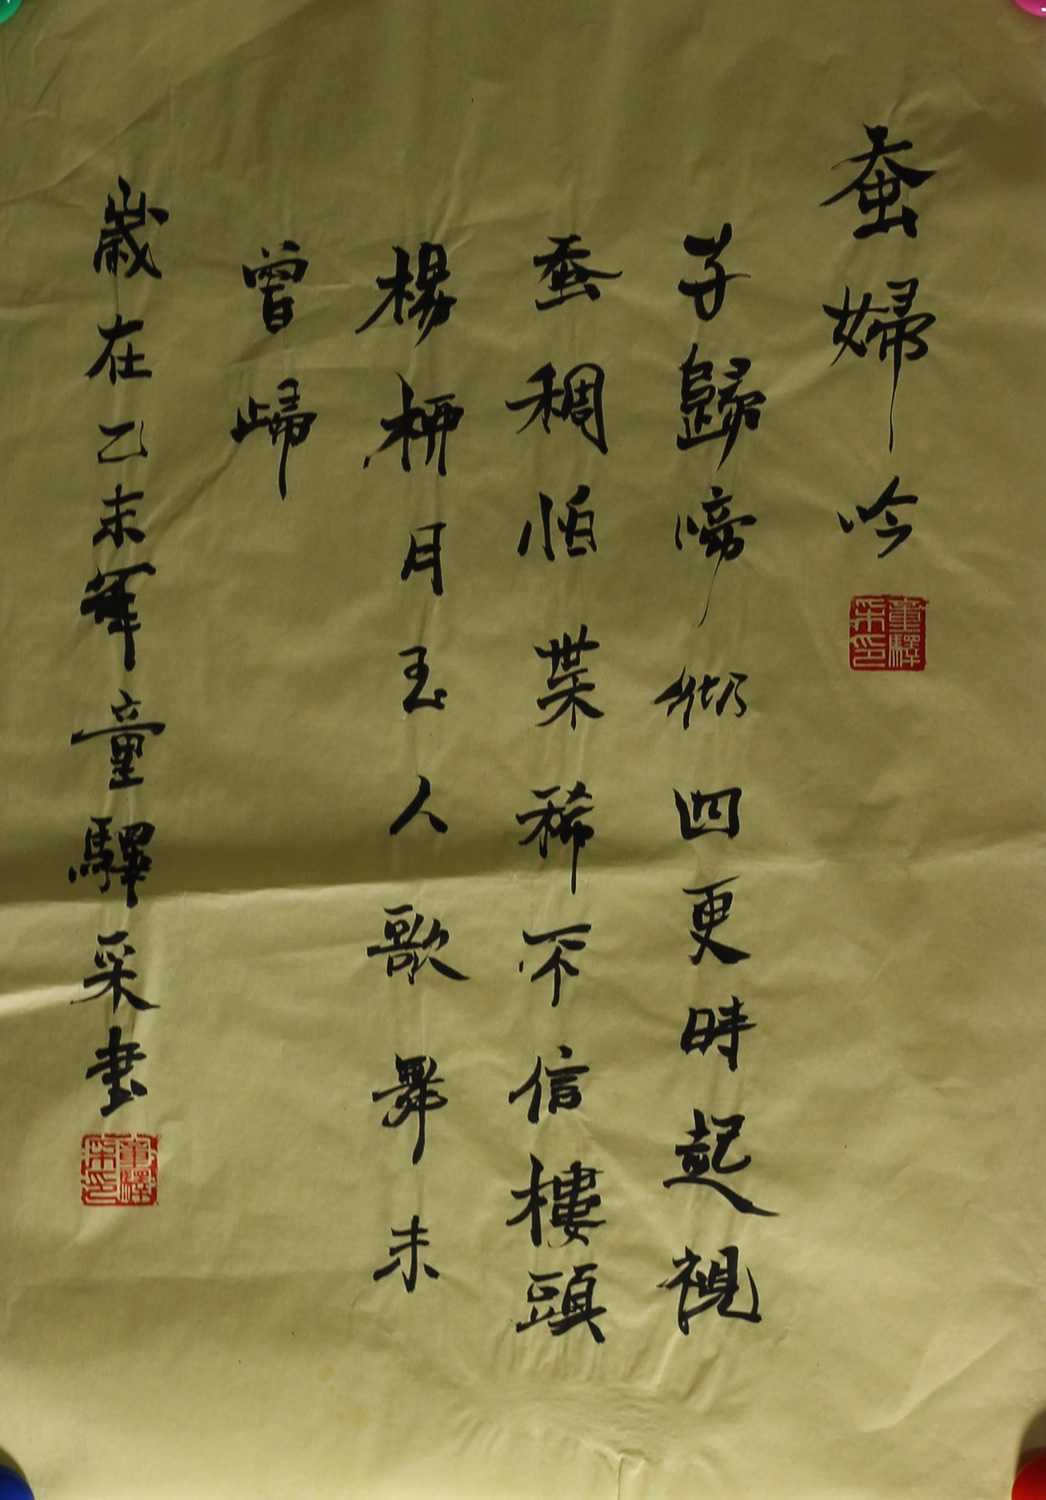 蚕婦吟
童驛采印
子歸啼彻四更時起視
蚕稠怕葉稀不信樓頭
楊柳月玉人歌舞未
曾歸
歲在乙未年童驛采書
童驛采印